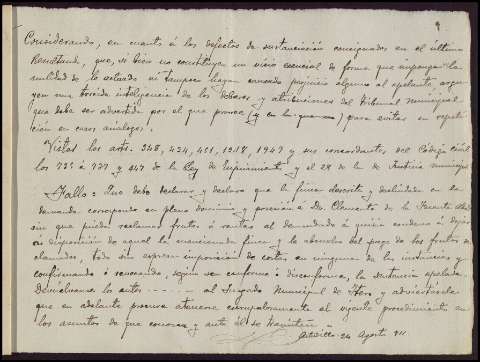 Considerando, en cuanto á los defectos de sustanciación consignados en el último
Resultando, que, si bien no constituyen un vicio esencial de forma que imponga la
nulidad de lo actuado ni tampoco hayan causado perjuicio alguno al apelante, argu
yen una torcida inteligencia de los deberes y atribuciones del Tribunal Municipal
que debe ser advertida por el que provee para evitar su repeti
ción en casos análogos.
Vistos los arts. 348, 434, 451, 1214, 1947 y sus concordantes del Código Civil
los y 947 de la Ley de Enjuiciamiento y el 29 de la de Justicia municipal
Fallo: Que debo declarar y declaro que la finca descrita y deslindada en la
demanda corresponde en pleno dominio y posesión á Dn. Clemente de la
sin que pueda reclamar frutos ó rentas al demandado á quien condeno á dejar
á disposición de aquel la mencionada finca y le absuelvo del pago de los frutos re
clamados, todo sin expresa imposición de costas en ninguna de las instancias y
confirmando ó revocando, según sea conforme ó disconforme, la sentencia apelada.
Devuélvanse los autos ------ al Juzgado Municipal de y adviértasele
que en adelante procure atenerse escrupulosamente al vigente procedimiento en
los asuntos de que conozca y ante él se tramiten.=
24 Agosto 911.